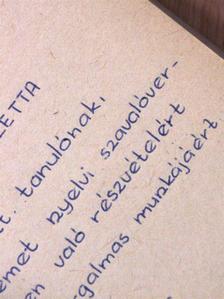 ETTA
. tanulónak,
emet nyelvi szavalóver-
en való részvételért
galmas munkájáért